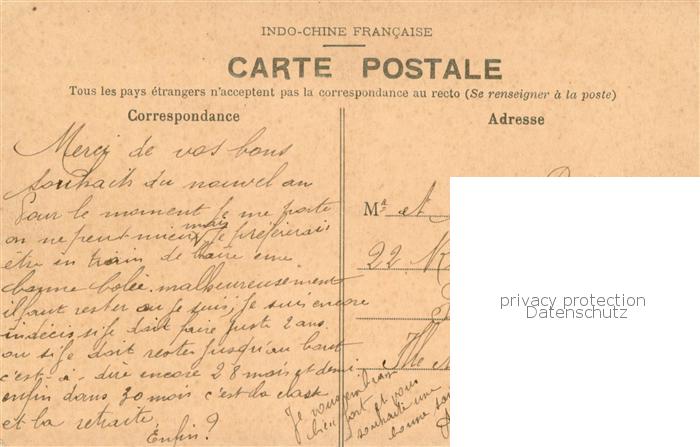 INDO-CHINE FRANÇAISE
CARTE POSTALE
Tous les pays étrangers n'acceptent pas la correspondance au recto (Se renseigner à la poste)
Correspondance
Merci de vos bons
souhaits du nouvel an
Pour le moment je me porte
on ne peut mieux mais je préférerais
être en train de boire une
bonne bolée. malheureusement
il faut rester ou je suis, je suis encore
indécis si je dois faire juste 2 ans
ou si je dois rester jusqu'au bout
c'est-à-dire encore 28 mois et demi
enfin dans 30 mois c'est la classe
et la retraite.
Enfin?
Je vous embrasse
bien fort et vous
souhaite une
bonne
Adresse
Mr et
22
Ille
privacy protection
Datenschutz